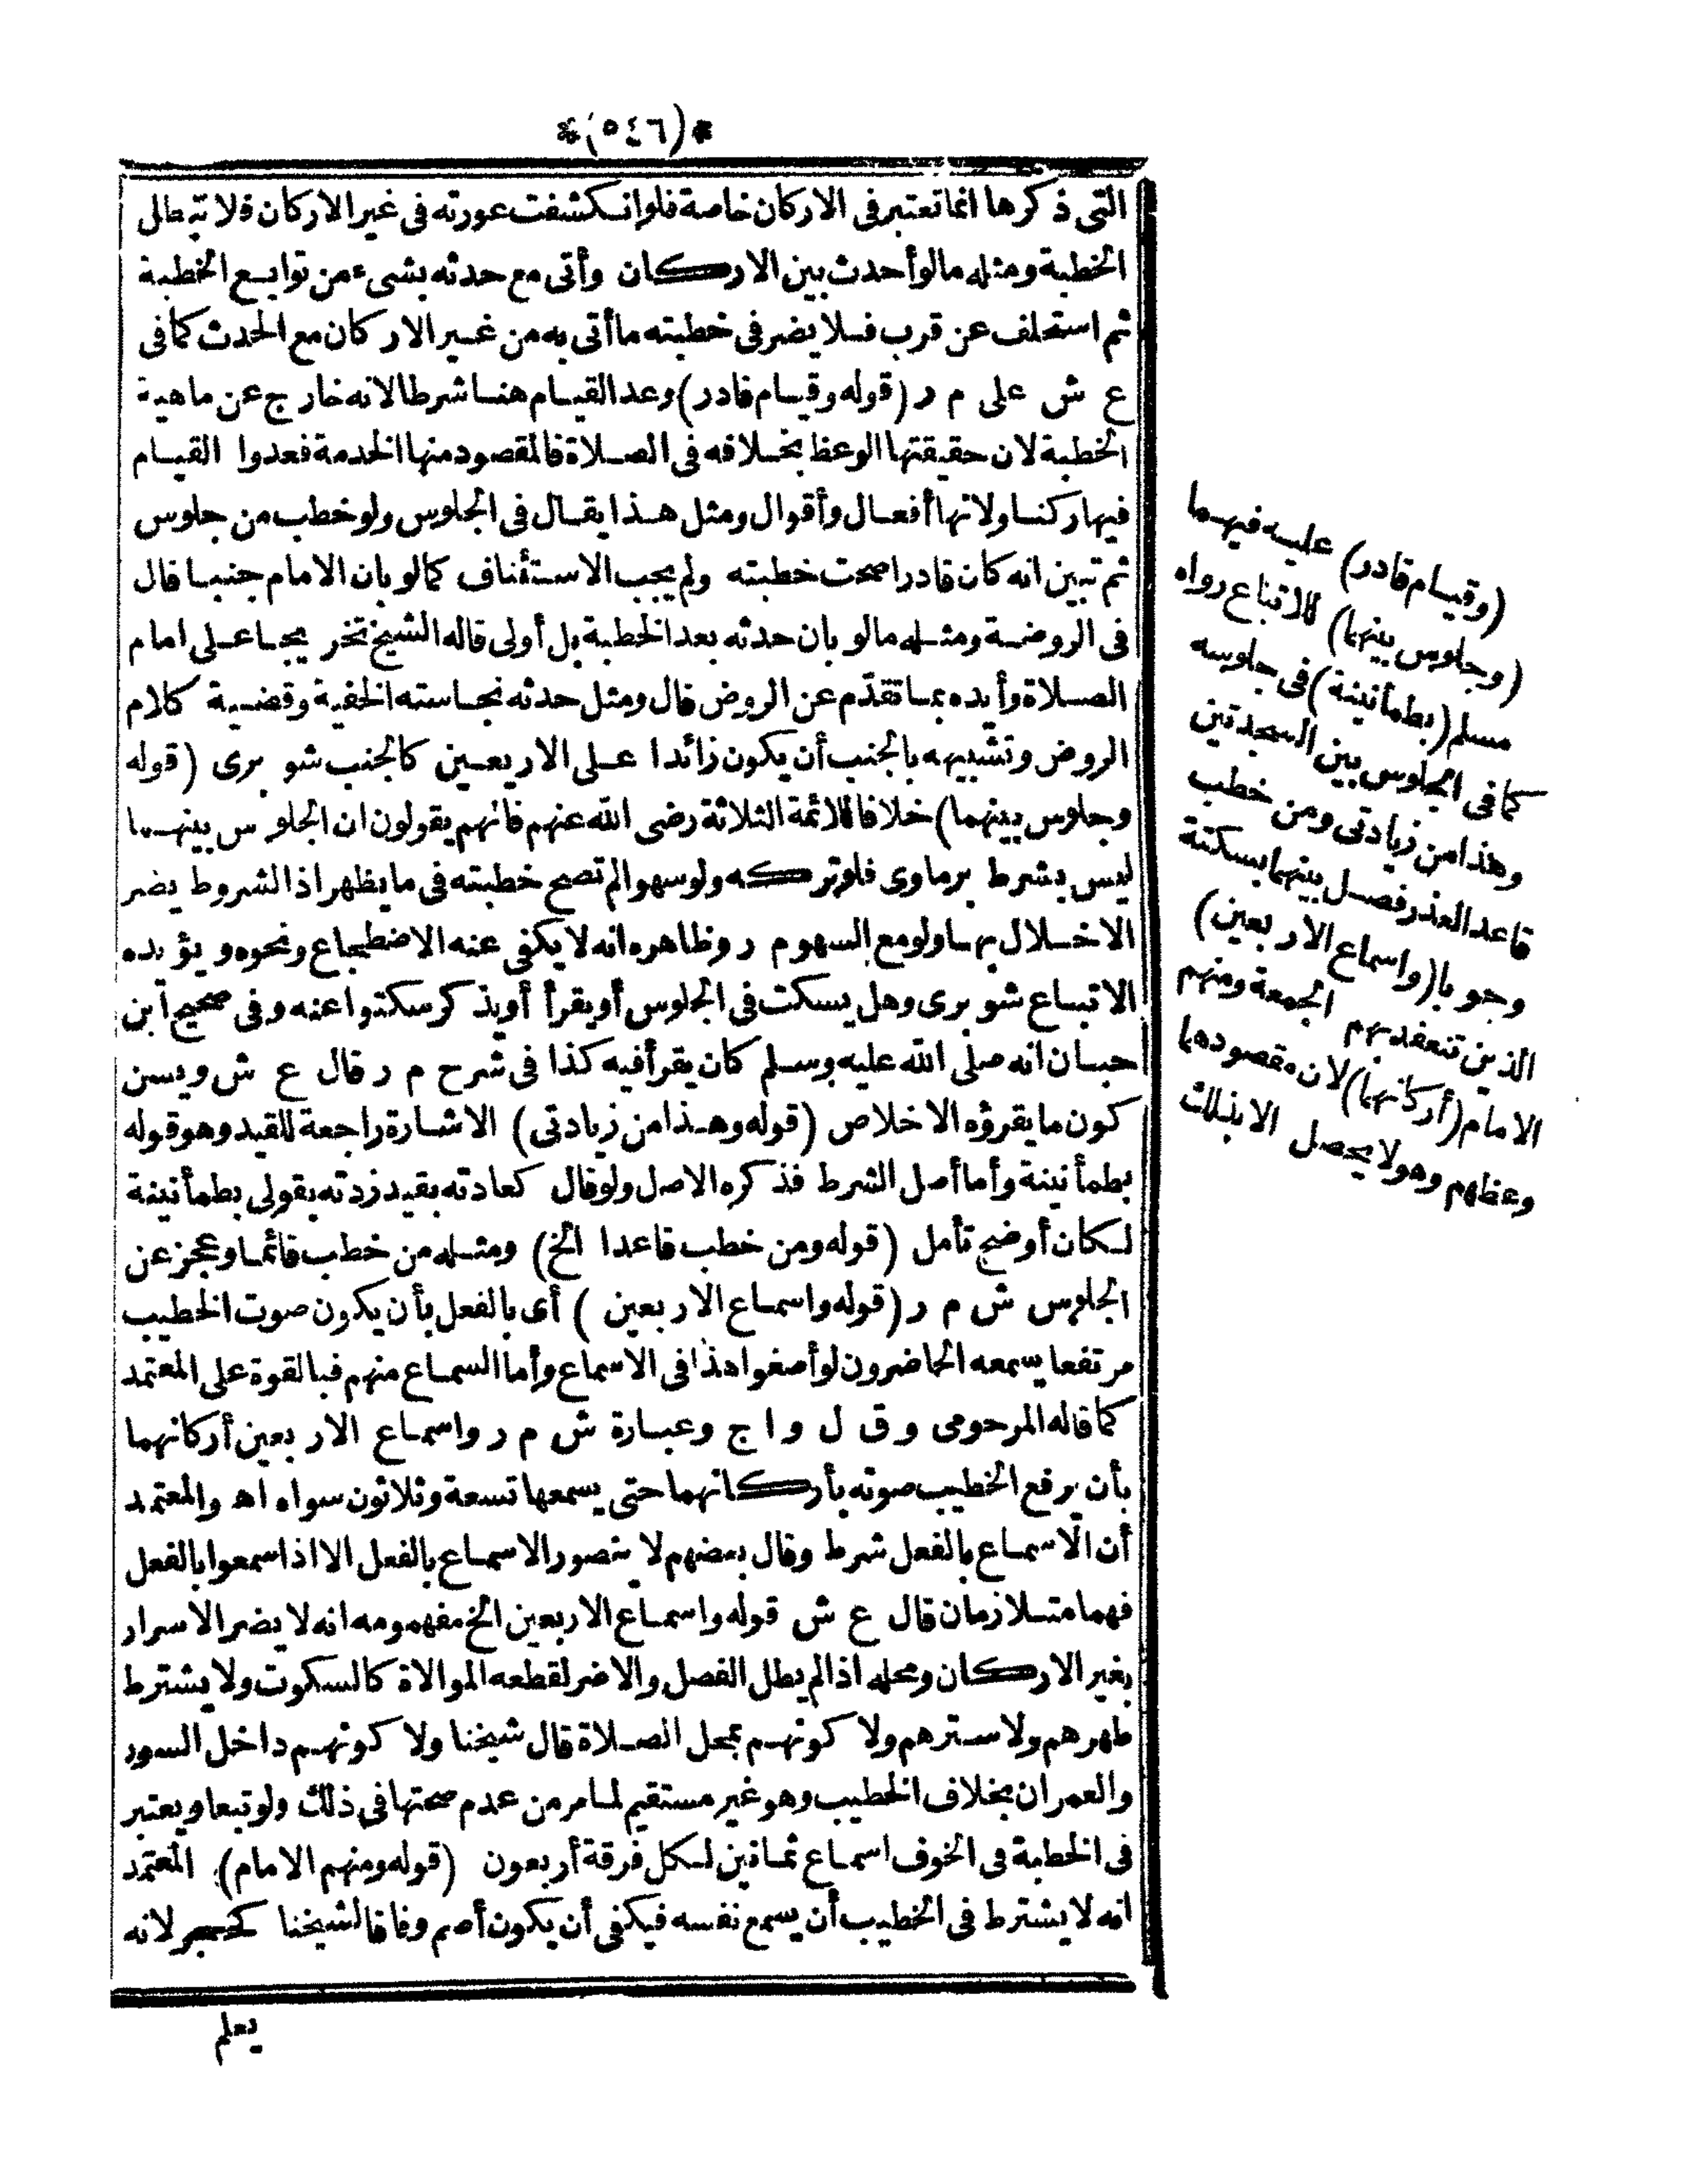 *(٥٤٦)*
التى ذكرها انما تعتبر فى الاركان خاصة فلو انكشفت عورته فى غير الاركان فلا تبطل
الخطبة ومثله مالو أحدث بين الاركان وأتى مع حدثه بشىء من توابع الخطبة
ثم استخلف عن قرب فلا يضر فى خطبته ما أتى به من غير الاركان مع الحدث كما فى
ع ش على م ر (قوله وقيام قادر) وعد القيام هنا شرطا لانه خارج عن ماهية
الخطبة لان حقيقتها الوعظ بخلافه فى الصلاة فالمقصود منها الخدمة فعدوا القيام
فيها ركنا ولانها أفعال وأقوال ومثل هذا يقال فى الجلوس ولو خطب من جلوس
ثم تبين انه كان قادرا صحت خطبته ولم يجب الاستئناف كما لو بان الامام جنبا قال
فى الروضة ومثله مالو بان حدثه بعد الخطبة بل أولى قاله الشيخ تخريجا على امام
الصلاة وأيده بما تقدّم عن الروض قال ومثل حدثه نجاسته الخفية وقضية كلام
الروض وتشبيهه بالجنب أن يكون زائدا على الاربعين كالجنب شوبرى (قوله
وجلوس بينهما) خلافا للائمة الثلاثة رضى الله عنهم فانهم يقولون ان الجلوس بينهما
ليس بشرط برماوى فلو تركه ولو سهوا لم تصح خطبته فى ما يظهر اذ الشروط يضر
الاخلال بها ولو مع السهو م ر وظاهره انه لا يكفى عنه الاضطجاع ونحوه ويؤيده
الاتباع شوبرى وهل يسكت فى الجلوس أو يقرأ أو يذكر سكتوا عنه وفى صحيح ابن
حبان انه صلى الله عليه وسلم كان يقرأ فيه كذا فى شرح م ر قال ع ش ويسن
كون ما يقرؤه الاخلاص (قوله وهذا من زيادتى) الاشارة راجعة للقيد وهو قوله
بطمأنينة وأما أصل الشرط فذكره الاصل ولو قال كعادته بقيد زدته بقولى بطمأنينة
لكان أوضح تأمل (قوله ومن خطب قاعدا الخ) ومثله من خطب قائما وعجز عن
الجلوس ش م ر (قوله واسماع الاربعين) أى بالفعل بأن يكون صوت الخطيب
مرتفعا يسمعه الحاضرون لو أصغوا هذا فى الاسماع وأما السماع منهم فبالقوة على المعتمد
كما قاله المرحومى و ق ل و ا ج وعبارة ش م ر واسماع الاربعين أركانهما
بأن يرفع الخطيب صوته بأركانهما حتى يسمعها تسعة وثلاثون سواه اه والمعتمد
أن الاسماع بالفعل شرط وقال بعضهم لا يتصور الاسماع بالفعل الا اذا سمعوا بالفعل
فهما متلازمان قال ع ش قوله واسماع الاربعين الخ مفهومه انه لا يضر الاسرار
بغير الاركان ومحله اذا لم يطل الفصل والا ضر لقطعه الموالاة كالسكوت ولا يشترط
طهرهم ولا سترهم ولا كونهم بمحل الصلاة قال شيخنا ولا كونهم داخل السور
والعمران بخلاف الخطيب وهو غير مستقيم لما مر من عدم صحتها فى ذلك ولو تبعا ويعتبر
فى الخطبة فى الخوف اسماع ثمانين لكل فرقة أربعون (قوله ومنهم الامام) المعتمد
انه لا يشترط فى الخطيب أن يسمع نفسه فيكفى أن يكون أصم وفاقا لشيخنا كحجر لانه
يعلم
(وقيام قادر) عليه فيهما
(وجلوس بينهما) للاتباع رواه
مسلم (بطمأنينة) فى جلوسه
كما فى الجلوس بين السجدتين
وهذا من زيادتى ومن خطب
قاعدا لعذر فصل بينهما بسكتة
وجوبا (واسماع الاربعين)
الذين تنعقد بهم الجمعة ومنهم
الامام (أركانهما) لان مقصودهما
وعظهم وهو لا يحصل الا بذلك